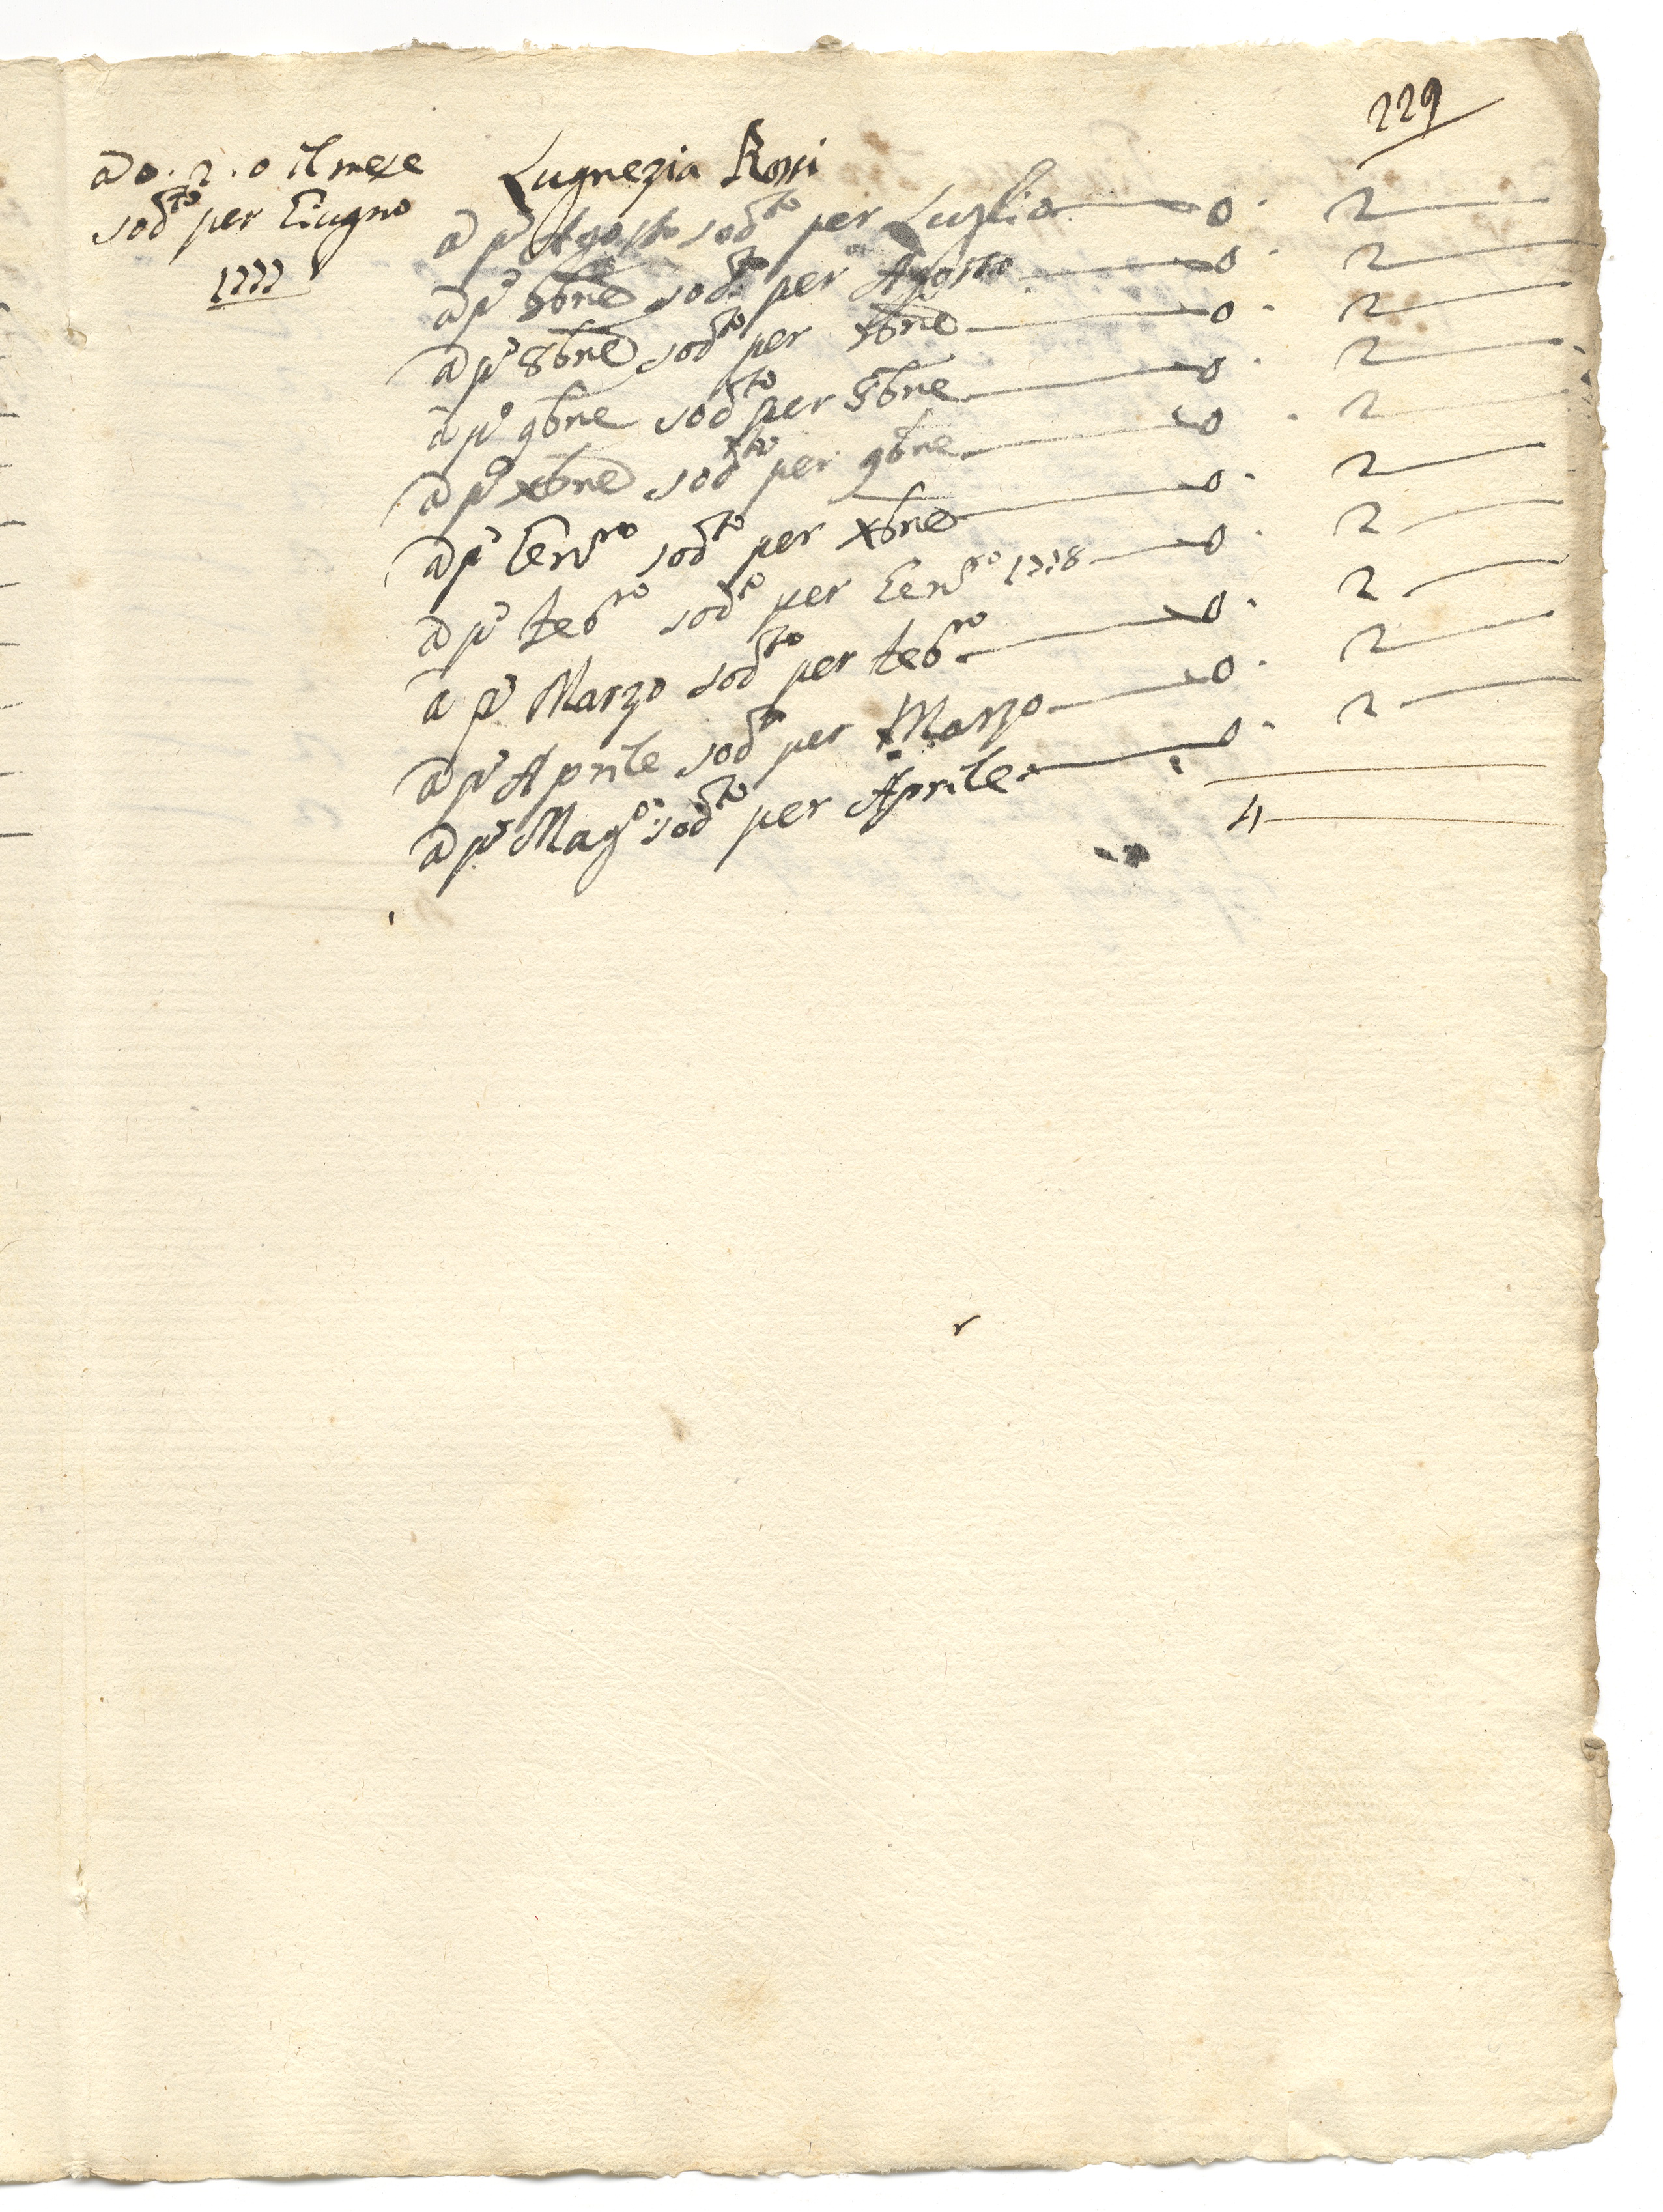 229
a 0. 2. 0 il mese
sod.to per Giugno
1777
Lugrezia Rossi
a p.o Agosto sod.to per Luglio — 0. 2 —
a p.o 7bre sod.to per Agosto — 0. 2 —
a p.o 8bre sod.to per 7bre — 0. 2 —
a p.o 9bre sod.to per 8bre — 0. 2 —
a p.o Xbre sod.to per 9bre — 0. 2 —
a p.o Gen.ro sod.to per Xbre — 0. 2 —
a p.o Feb.ro sod.to per Gen.ro 1778 — 0. 2 —
a p.o Marzo sod.to per Feb.ro — 0. 2 —
a p.o Aprile sod.to per Marzo — 0. 2 —
a p.o Mag.o sod.to per Aprile — 0. 2 —
4 —